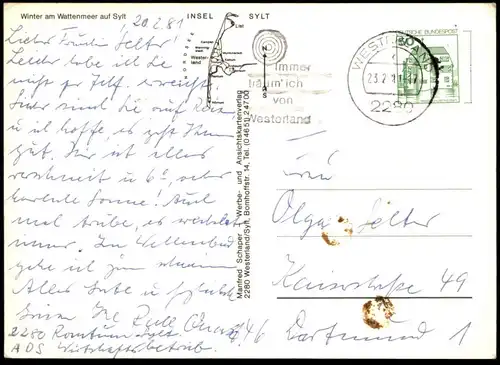 Winter am Wattenmeer auf Sylt
20.2.81
Liebe Freundin Selter!
Leider habe ich Sie
nicht per Telf. erreicht.
Sicher sind Sie auf Reisen,
u. ich hoffe, es geht Ihnen
gut. Hier ist alles
verschneit u. 6°, aber
Sonne! Auch
mal trübe, es wechselt
immer. Im Wellenbad
gehe ich zum
Alles Liebe u.
Ihre
2280 Rantum Sylt
ADS Wirtschaftsbetrieb.
INSEL SYLT
NORDSEE
List
Kampen
Westerland
Keitum
Morsum
Hörnum
N
S
Manfred Schaper - Werbe- und Ansichtskartenverlag
2280 Westerland/Sylt, Bomhoffstr. 14, Tel. (0 46 51) 2 47 00
Immer
träum' ich
von
Westerland
WESTERLAND
23.2.81-17
2280
DEUTSCHE BUNDESPOST
Frau
Olga Selter
Kaiserstraße 49
46 Dortmund 1